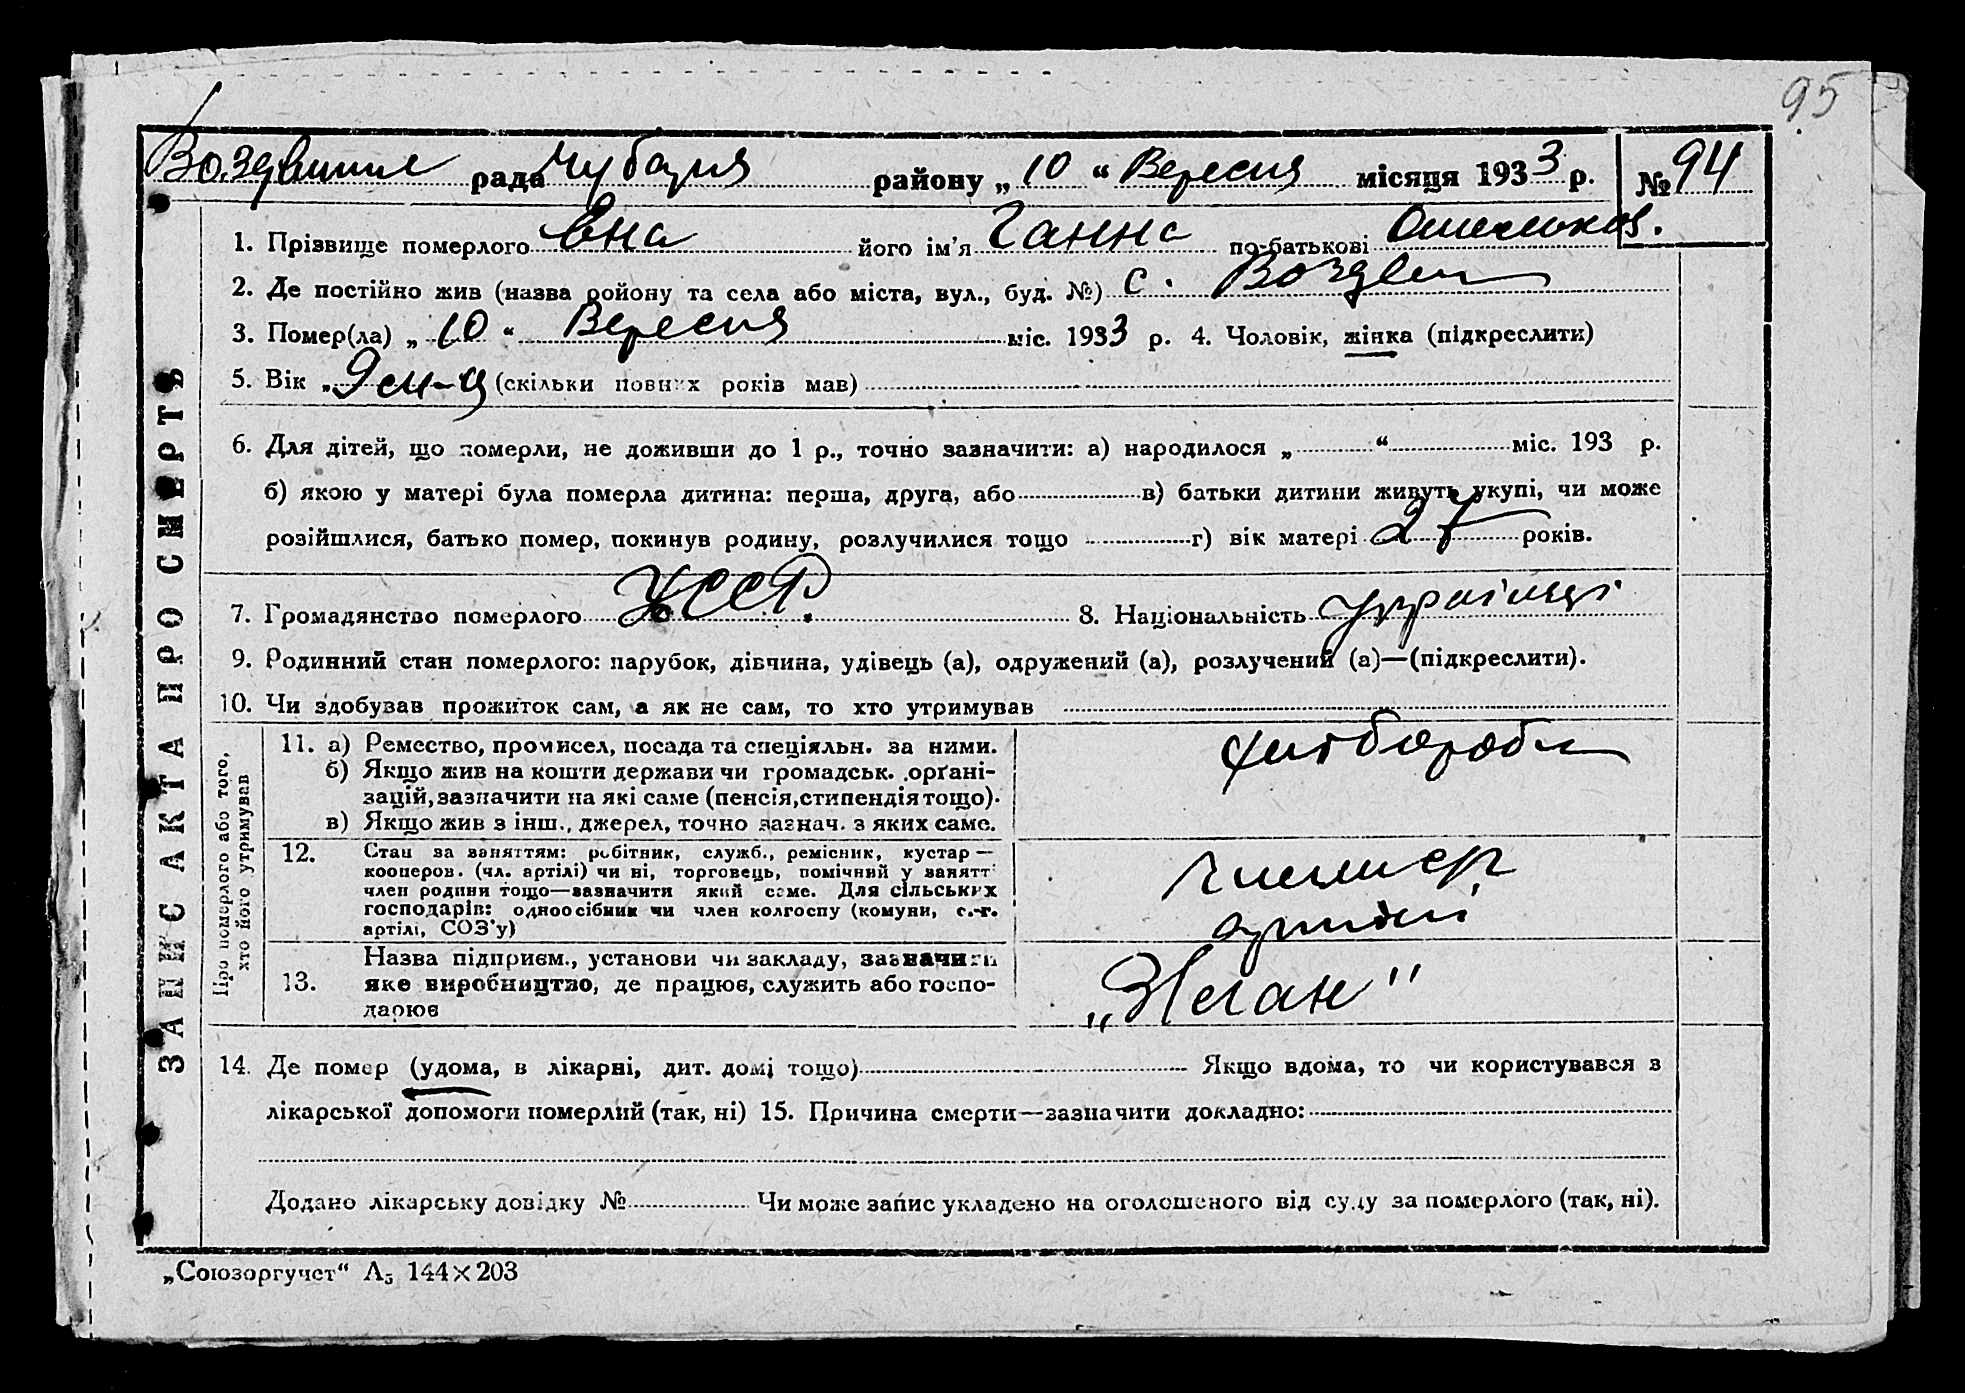 95
рада Чубаря району „10“ Вересня місяця 1933 р. № 94
1. Прізвище померлого Ена його ім'я Ганна по-батькові
2. Де постійно жив (назва ройону та села або міста, вул., буд. №) с. Воздви
3. Помер(ла) „10“ Вересня міс. 1933 р. 4. Чоловік, жінка (підкреслити)
5. Вік „ (скільки повних років мав)
6. Для дітей, що померли, не доживши до 1 р., точно зазначити: а) народилося „ “ міс. 193 р.
б) якою у матері була померла дитина: перша, друга, або в) батьки дитини живуть укупі, чи може
розійшлися, батько помер, покинув родину, розлучилися тощо г) вік матері 27 років.
7. Громадянство померлого УССР. 8. Національність
9. Родинний стан померлого: парубок, дівчина, удівець (а), одружений (а), розлучений (а)—(підкреслити).
10. Чи здобував прожиток сам, а як не сам, то хто утримував
Про померлого або того,
хто його утримував
11. а) Ремество, промисел, посада та спеціяльн. за ними.
б) Якщо жив на кошти держави чи громадськ. органі-
зацій, зазначити на які саме (пенсія, стипендія тощо).
в) Якщо жив з інш., джерел, точно зазнач. з яких саме.
12. Стан за заняттям: робітник, служб., ремісник, кустар —
кооперов. (чл. артілі) чи ні, торговець, помічний у занятт
член родини тощо—зазначити який саме. Для сільських
господарів: одноосібник чи член колгоспу (комуни, с.-г.
артілі, СОЗ'у)
артілі
13. Назва підприєм., установи чи закладу, зазначити
яке виробництво, де працює, служить або госпо-
дарює
14. Де помер (удома, в лікарні, дит. домі тощо) Якщо вдома, то чи користувався з
лікарської допомоги померлий (так, ні) 15. Причина смерти—зазначити докладно:
Додано лікарську довідку № Чи може запис укладено на оголошеного від суду за померлого (так, ні).
ЗАПИС АКТА ПРО СМЕРТЬ
„Союзоргучет“ А5 144×203